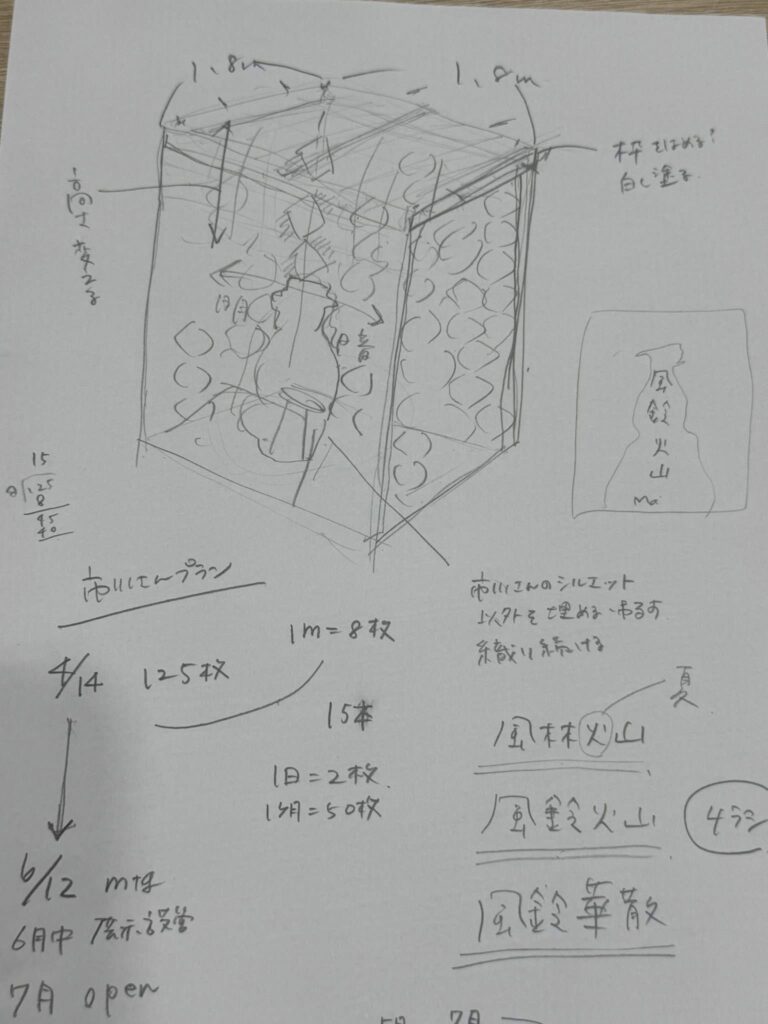 1.8m
1.8m
枠をはめる!
白く塗る
高さ変える
明
暗
風鈴火山
15
8)125
8
45
40
市川さんプラン
市川さんのシルエット
以外を埋める・吊るす
織り続ける
4/14 125枚
1m=8枚
15本
1日=2枚
1ヶ月=50枚
夏
風林火山
風鈴火山
風鈴華散
6/12 mtg
6月中 展示設営
7月 open
7月